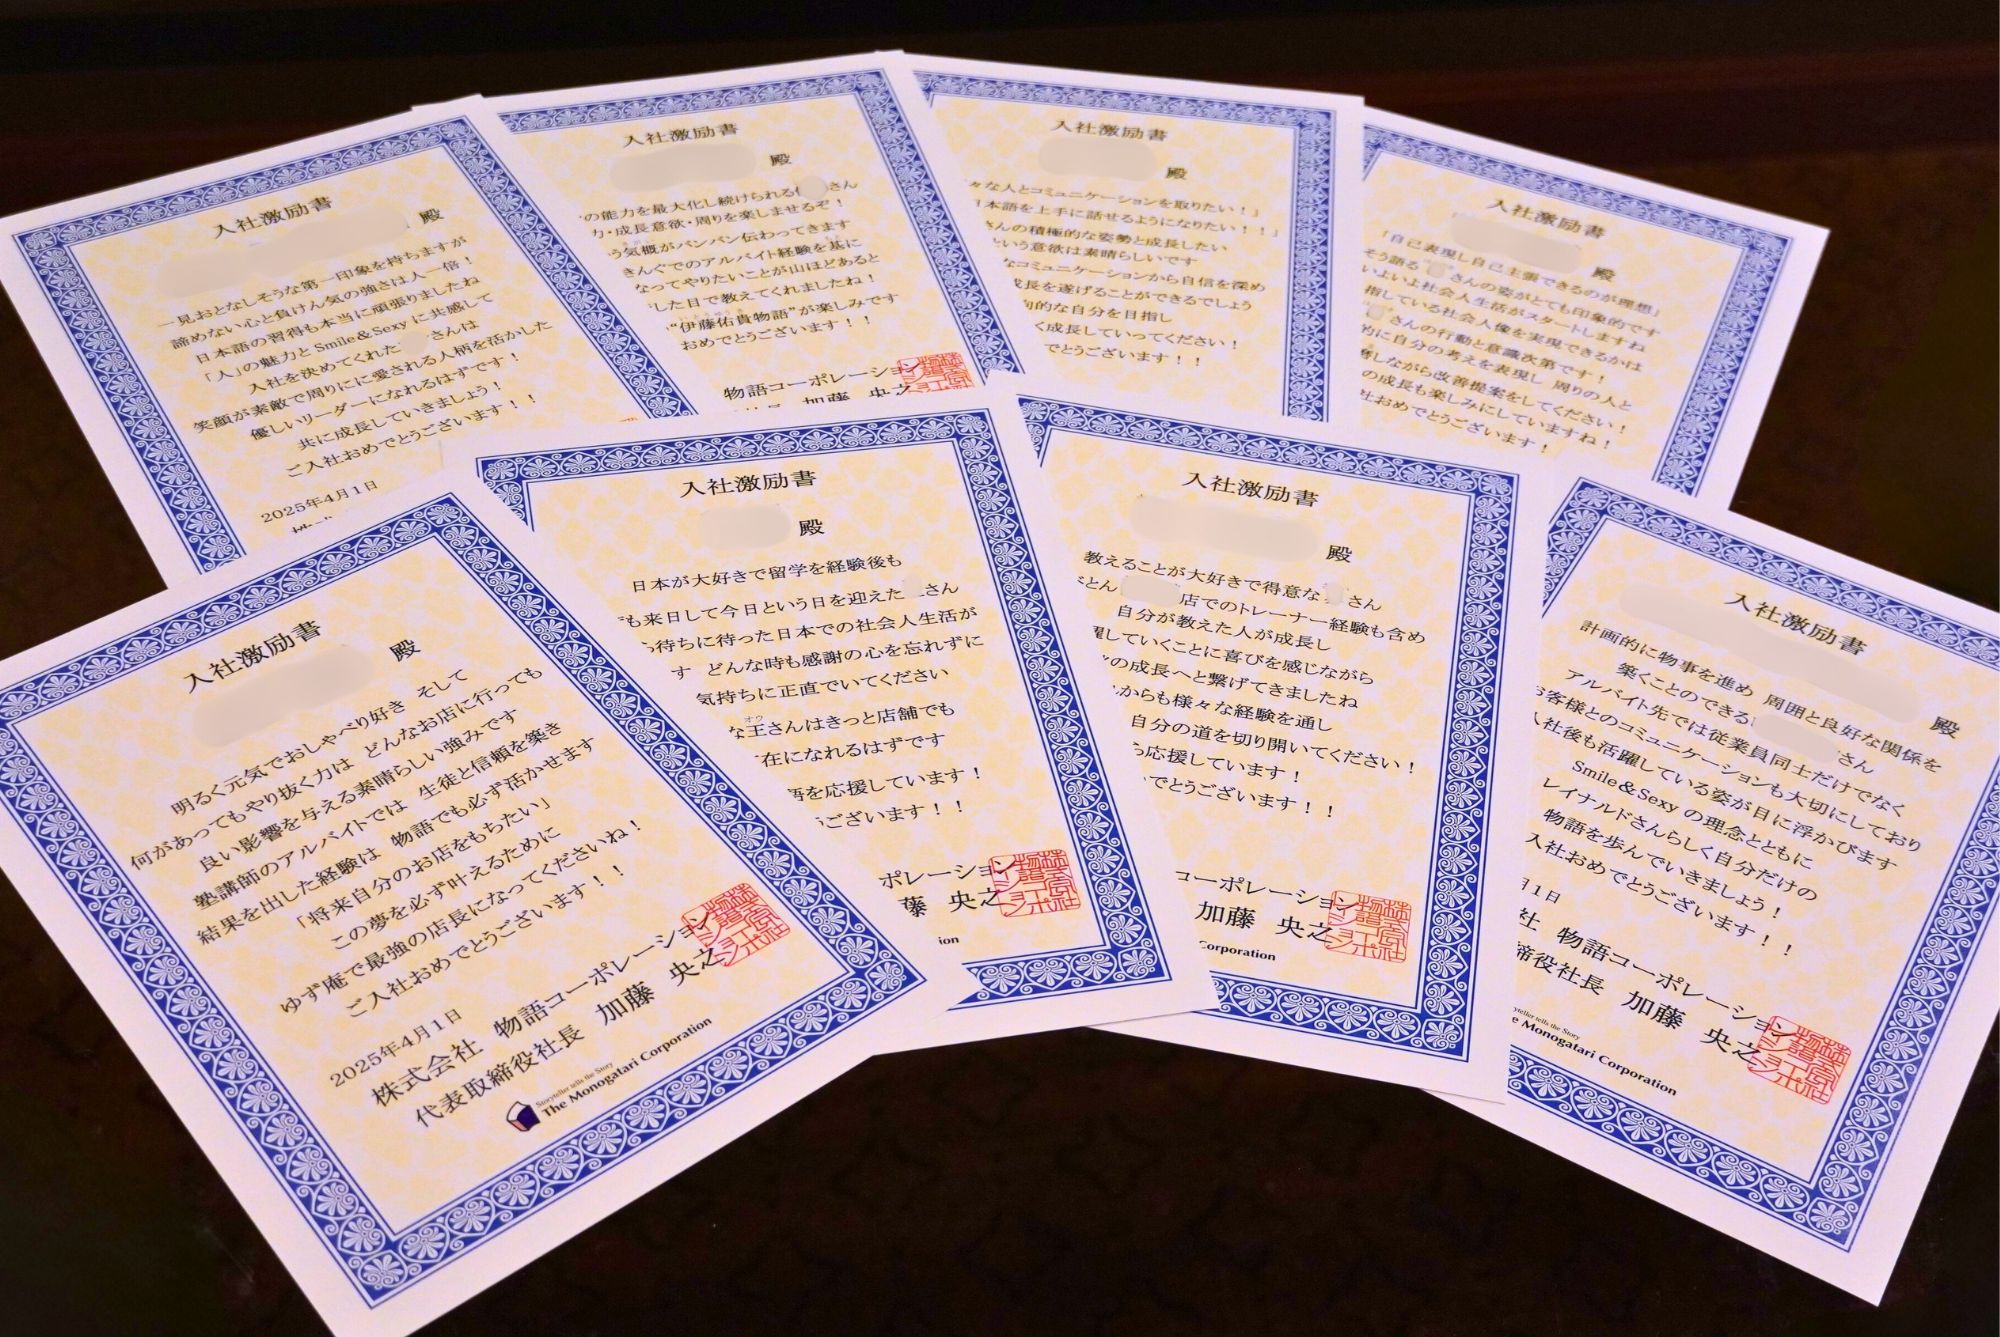 入社激励書
殿
一見おとなしそうな第一印象を持ちますが
諦めない心と負けん気の強さは人一倍！
日本語の習得も本当に頑張りましたね
「人」の魅力とSmile&Sexyに共感して
入社を決めてくれた さんは
笑顔が素敵で周りにに愛される人柄を活かした
優しいリーダーになれるはずです！
共に成長していきましょう！
ご入社おめでとうございます！！
2025年4月1日
入社激励書
殿
の能力を最大化し続けられる さん
力・成長意欲・周りを楽しませるぞ！
う気概がバンバン伝わってきます
きんぐでのアルバイト経験を基に
なってやりたいことが山ほどあると
した目で教えてくれましたね！
“伊藤佑貴物語”が楽しみです
おめでとうございます！！
物語コーポレーション
加藤 央之
入社激励書
殿
々な人とコミュニケーションを取りたい！」
日本語を上手に話せるようになりたい！！」
さんの積極的な姿勢と成長したい
という意欲は素晴らしいです
なコミュニケーションから自信を深め
成長を遂げることができるでしょう
向的な自分を目指し
く成長していってください！
でとうございます！！
入社激励書
殿
「自己表現し自己主張できるのが理想」
そう語る さんの姿がとても印象的です
いよいよ社会人生活がスタートしますね
指している社会人像を実現できるかは
さんの行動と意識次第です！
的に自分の考えを表現し 周りの人と
しながら改善提案をしてください！
の成長も楽しみにしていますね！
社おめでとうございます！
入社激励書
殿
明るく元気でおしゃべり好き そして
何があってもやり抜く力は どんなお店に行っても
良い影響を与える素晴らしい強みです
塾講師のアルバイトでは 生徒と信頼を築き
結果を出した経験は 物語でも必ず活かせます
「将来自分のお店をもちたい」
この夢を必ず叶えるために
ゆず庵で最強の店長になってくださいね！
ご入社おめでとうございます！！
2025年4月1日
株式会社 物語コーポレーション
代表取締役社長 加藤 央之
Storyteller tells the Story
The Monogatari Corporation
入社激励書
殿
日本が大好きで留学を経験後も
も来日して今日という日を迎えた さん
待ちに待った日本での社会人生活が
す どんな時も感謝の心を忘れずに
気持ちに正直でいてください
オウ
な王さんはきっと店舗でも
在になれるはずです
語を応援しています！
うございます！！
ポレーション
藤 央之
ion
入社激励書
殿
教えることが大好きで得意な さん
とん 店でのトレーナー経験も含め
自分が教えた人が成長し
躍していくことに喜びを感じながら
の成長へと繋げてきましたね
からも様々な経験を通し
自分の道を切り開いてください！
ら応援しています！
でとうございます！！
コーポレーション
加藤 央之
Corporation
入社激励書
殿
計画的に物事を進め 周囲と良好な関係を
築くことのできる さん
アルバイト先では従業員同士だけでなく
お客様とのコミュニケーションも大切にしており
入社後も活躍している姿が目に浮かびます
Smile&Sexyの理念とともに
レイナルドさんらしく自分だけの
物語を歩んでいきましょう！
入社おめでとうございます！！
月1日
社 物語コーポレーション
締役社長 加藤 央之
Storyteller tells the Story
The Monogatari Corporation